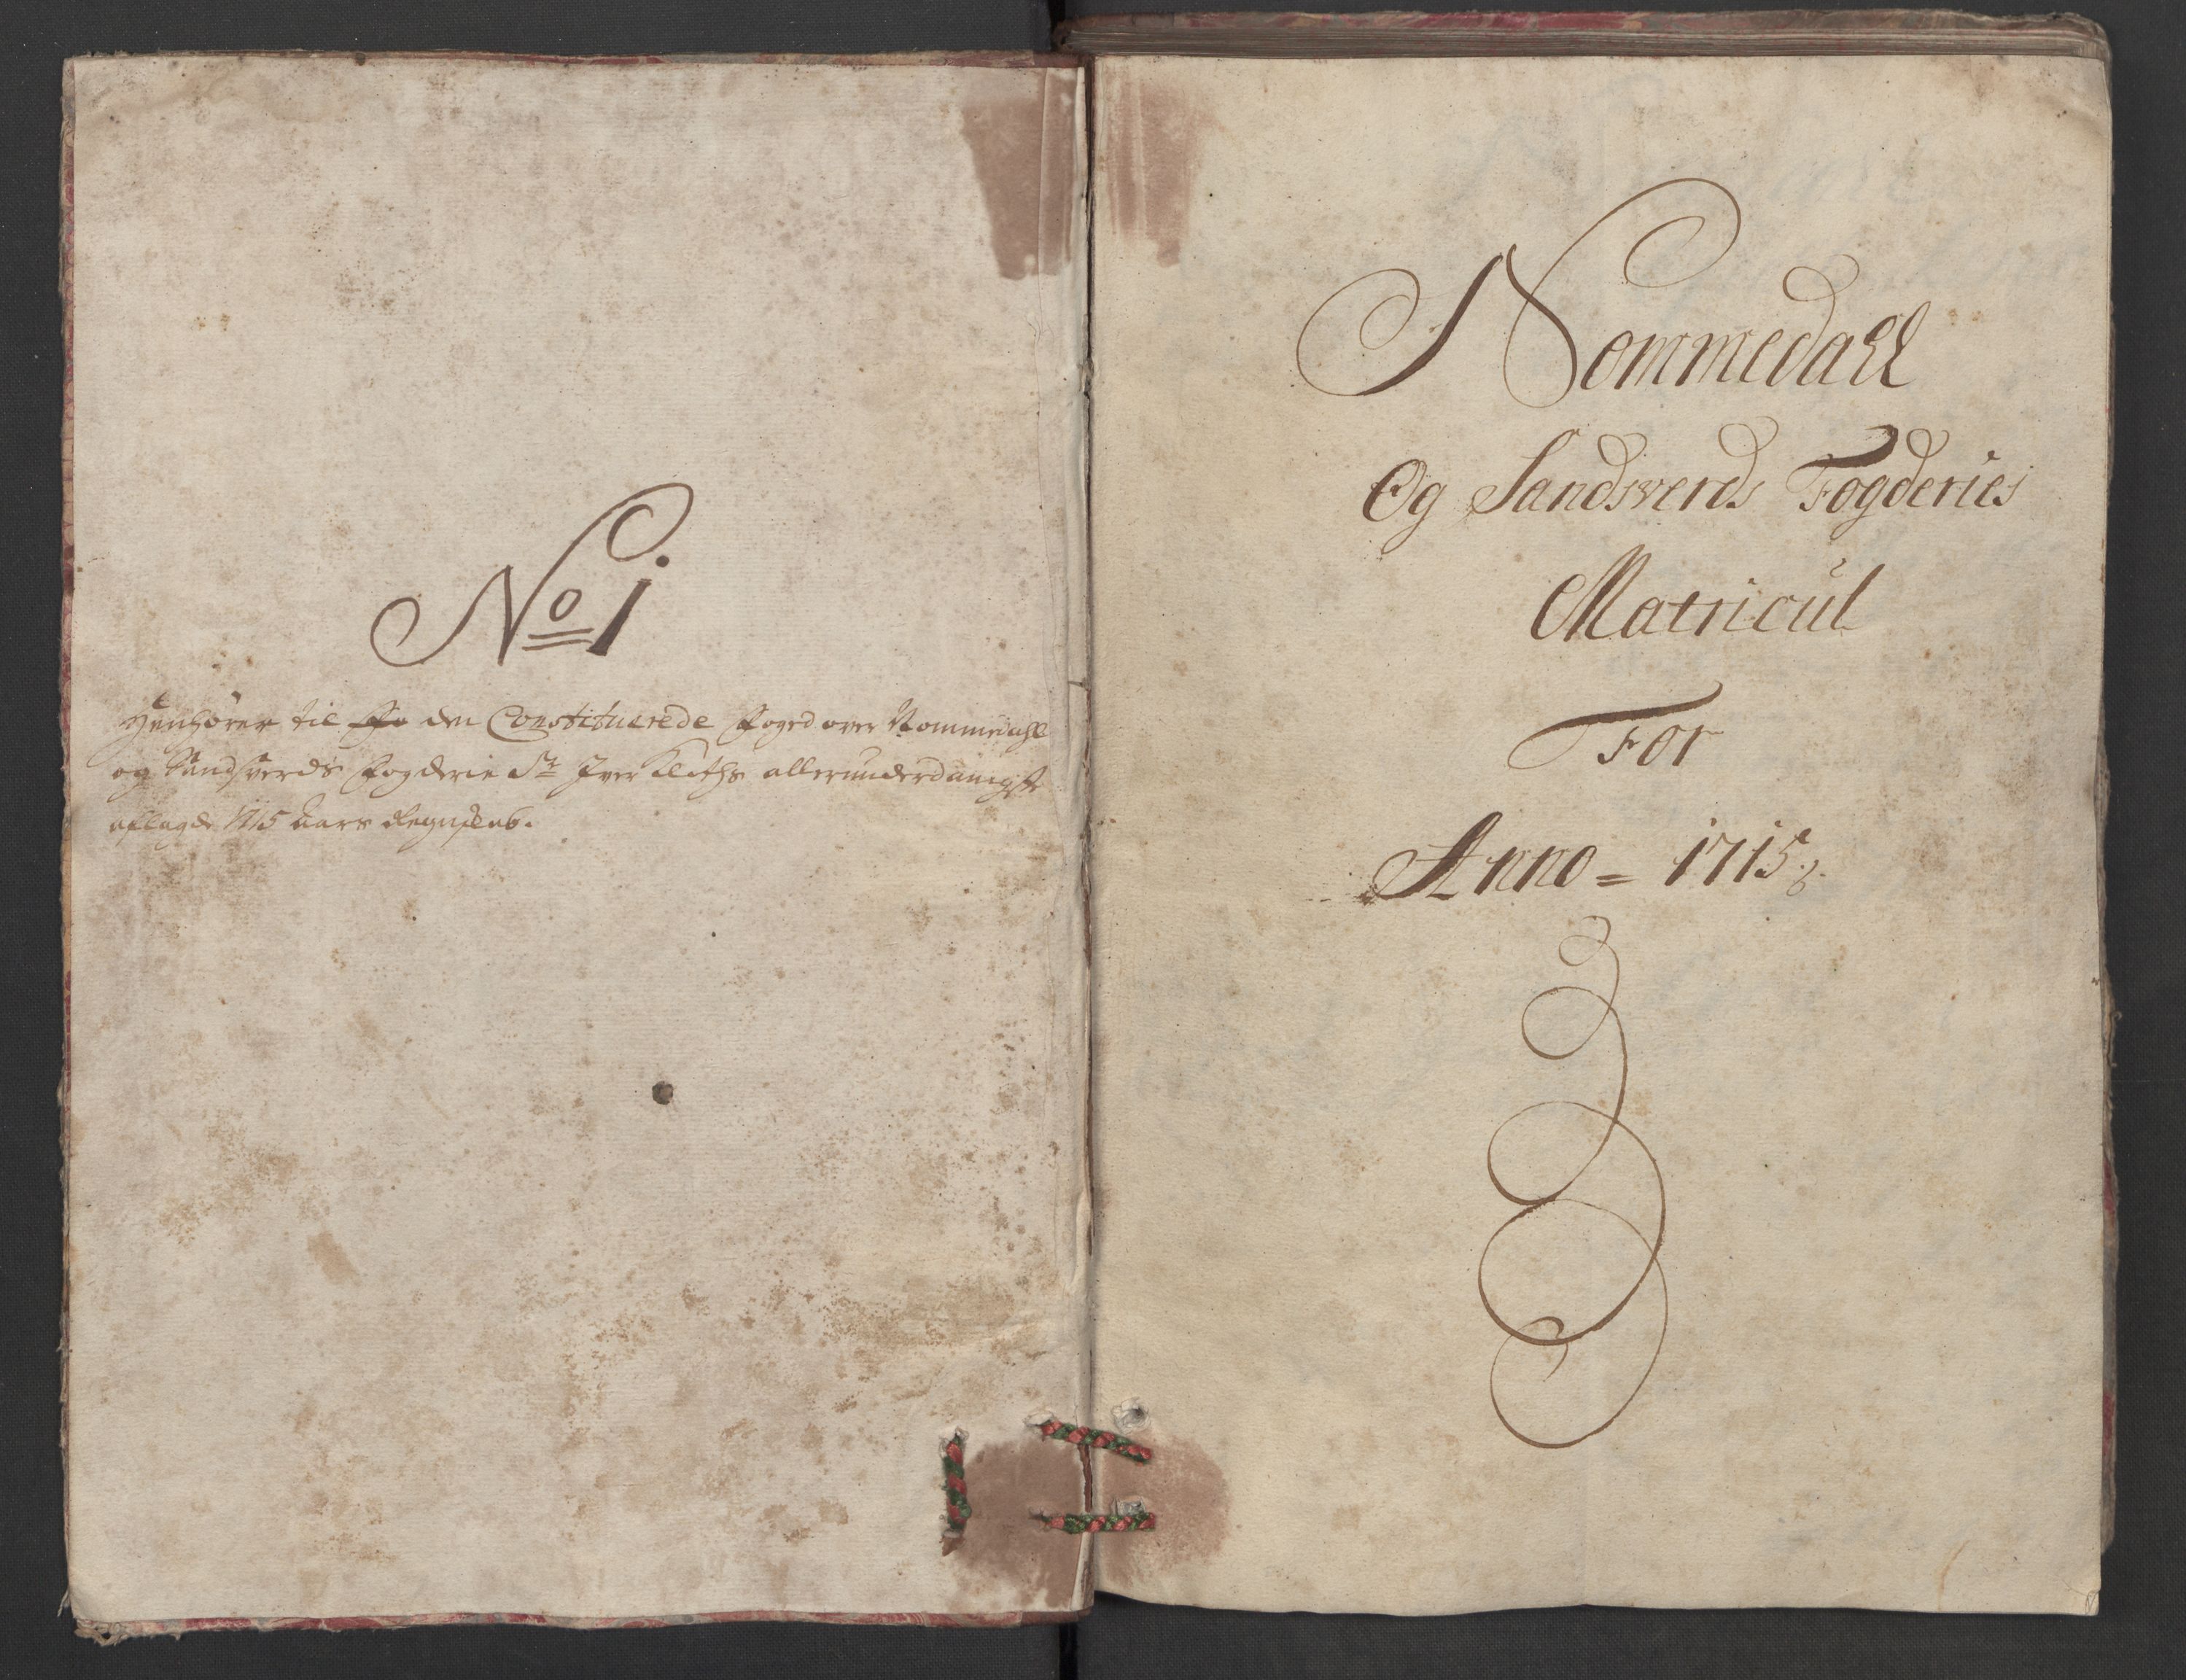 No 1
Henhører til den Constituerede Foged over Nommedahl
og Sandsverds Fogderie Sr Iver allerunderdanigst
aflagde 1715 Aars Regnskab.
Nommedahl
Og Sandsverds Fogderies
Matricul
For
Anno = 1715